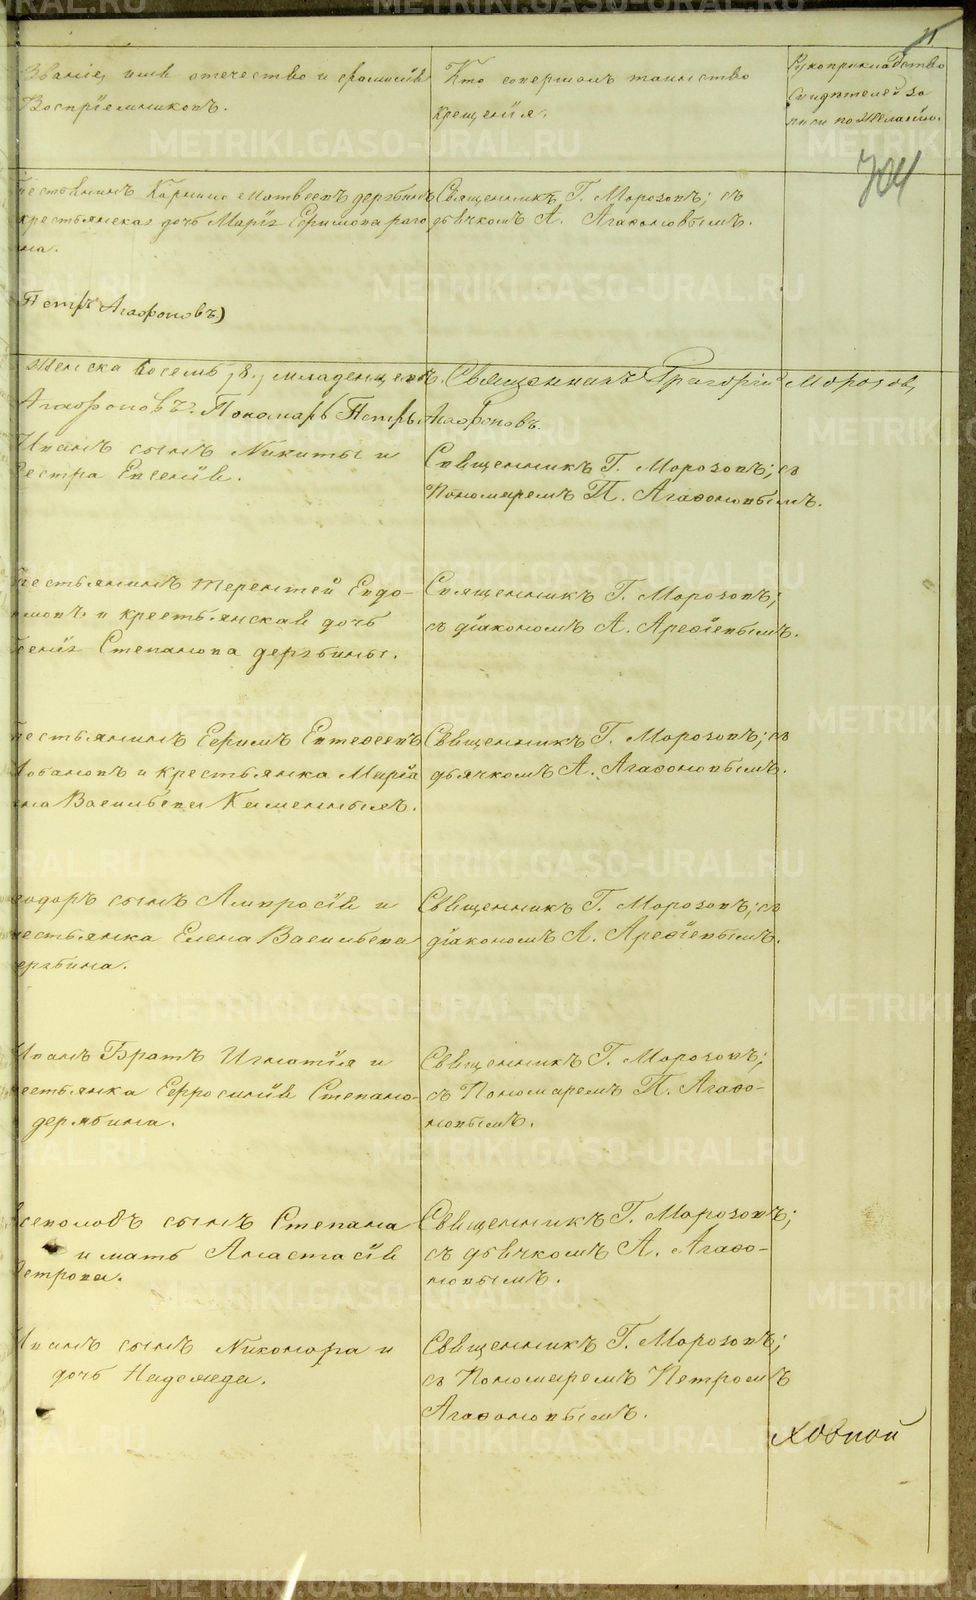 11
Званіе, имя отечество и фамилія
Воспріемниковъ.
Кто совершалъ таинство
крещенія.
Рукоприкладство
свидѣтелей за
писи по желанію.
704
Корнило Матвеевъ
крестьянская дочь Марія Ефимова
Священникъ Г. Морозовъ; съ
дьячкомъ А. Агафоновымъ.
Петръ Агафоновъ)
женска восемь, 8, младенцевъ. Священникъ Григорій Морозов,
Агафоновъ. Пономарь Петръ Агафоновъ.
Иванъ сынъ Никиты и
сестра Евсенія.
Священникъ Г. Морозовъ; съ
Пономаремъ П. Агафоновымъ.
Терентей Евдо-
и крестьянская дочь
Степанова дерябины.
Священникъ Г. Морозовъ;
съ діакономъ А. Арефіевымъ.
Ефимъ Евтефеевъ
Лобановъ и крестьянка Марія
Васильева Каменныхъ.
Священникъ Г. Морозовъ; съ
дьячкомъ А. Агафоновымъ.
сынъ Амвросія и
Елена Васильева
Священникъ Г. Морозовъ; съ
діакономъ А. Арефіевымъ.
Иванъ Братъ Игнатія и
Ефросинія Степано-
дерябина.
Священникъ Г. Морозовъ;
съ Пономаремъ П. Агафо-
новымъ.
сынъ Степана
и мать Анастасія
Петрова.
Священникъ Г. Морозовъ;
съ дьячкомъ А. Агафо-
новымъ.
Иванъ сынъ Никонора и
дочь Надежда.
Священникъ Г. Морозовъ;
съ Пономаремъ Петромъ
Агафоновымъ.
METRIKI.GASO-URAL.RU